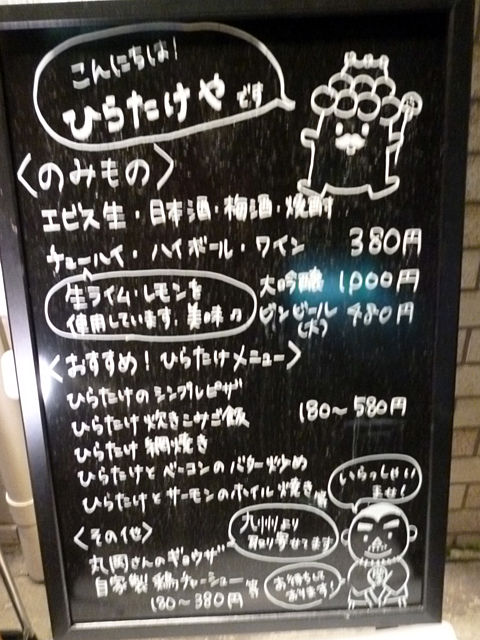 こんにちは!
ひらたけや です
<のみもの>
エビス生・日本酒・梅酒・焼酎
チューハイ・ハイボール・ワイン 380円
生ライム・レモンを
使用しています。美味
大吟醸 1,000円
ビンビール 480円
(大)
<おすすめ! ひらたけメニュー>
ひらたけのシンプルピザ
ひらたけ炊きこみご飯
180〜580円
ひらたけ網焼き
ひらたけとベーコンのバター炒め
ひらたけとサーモンのホイル焼き 等
いらっしゃい
ませ!
<その他>
九州より
取り寄せてます
丸岡さんのギョウザ
自家製 鶏チャーシュー 等
180〜380円
お待ちして
おります!